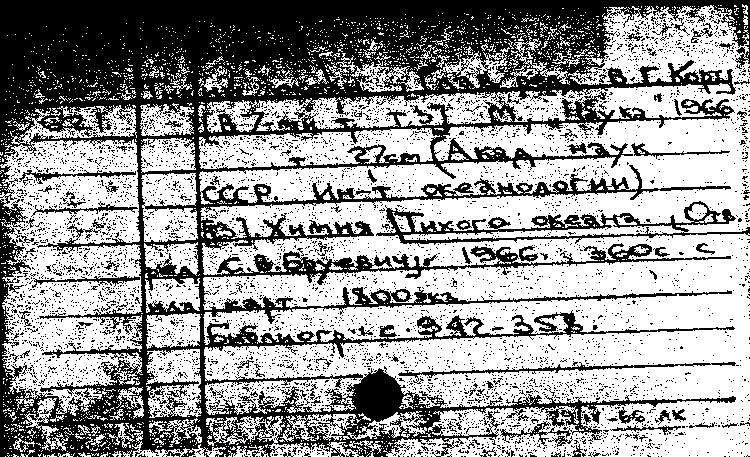 Тихий океан. [Глав. ред. В. Г. Корт
[В 7-ми т. Т.3] М., "Наука", 1966
т. 27см (Акад. наук
СССР. Ин-т океанологии).
[3]. Химия Тихого океана. [Отв.
ред. С. В. Бруевич]. 1966. 360с. с
илл., карт. 1800экз.
Библиогр.: с. 342-358.
29/IV-66 ЛК